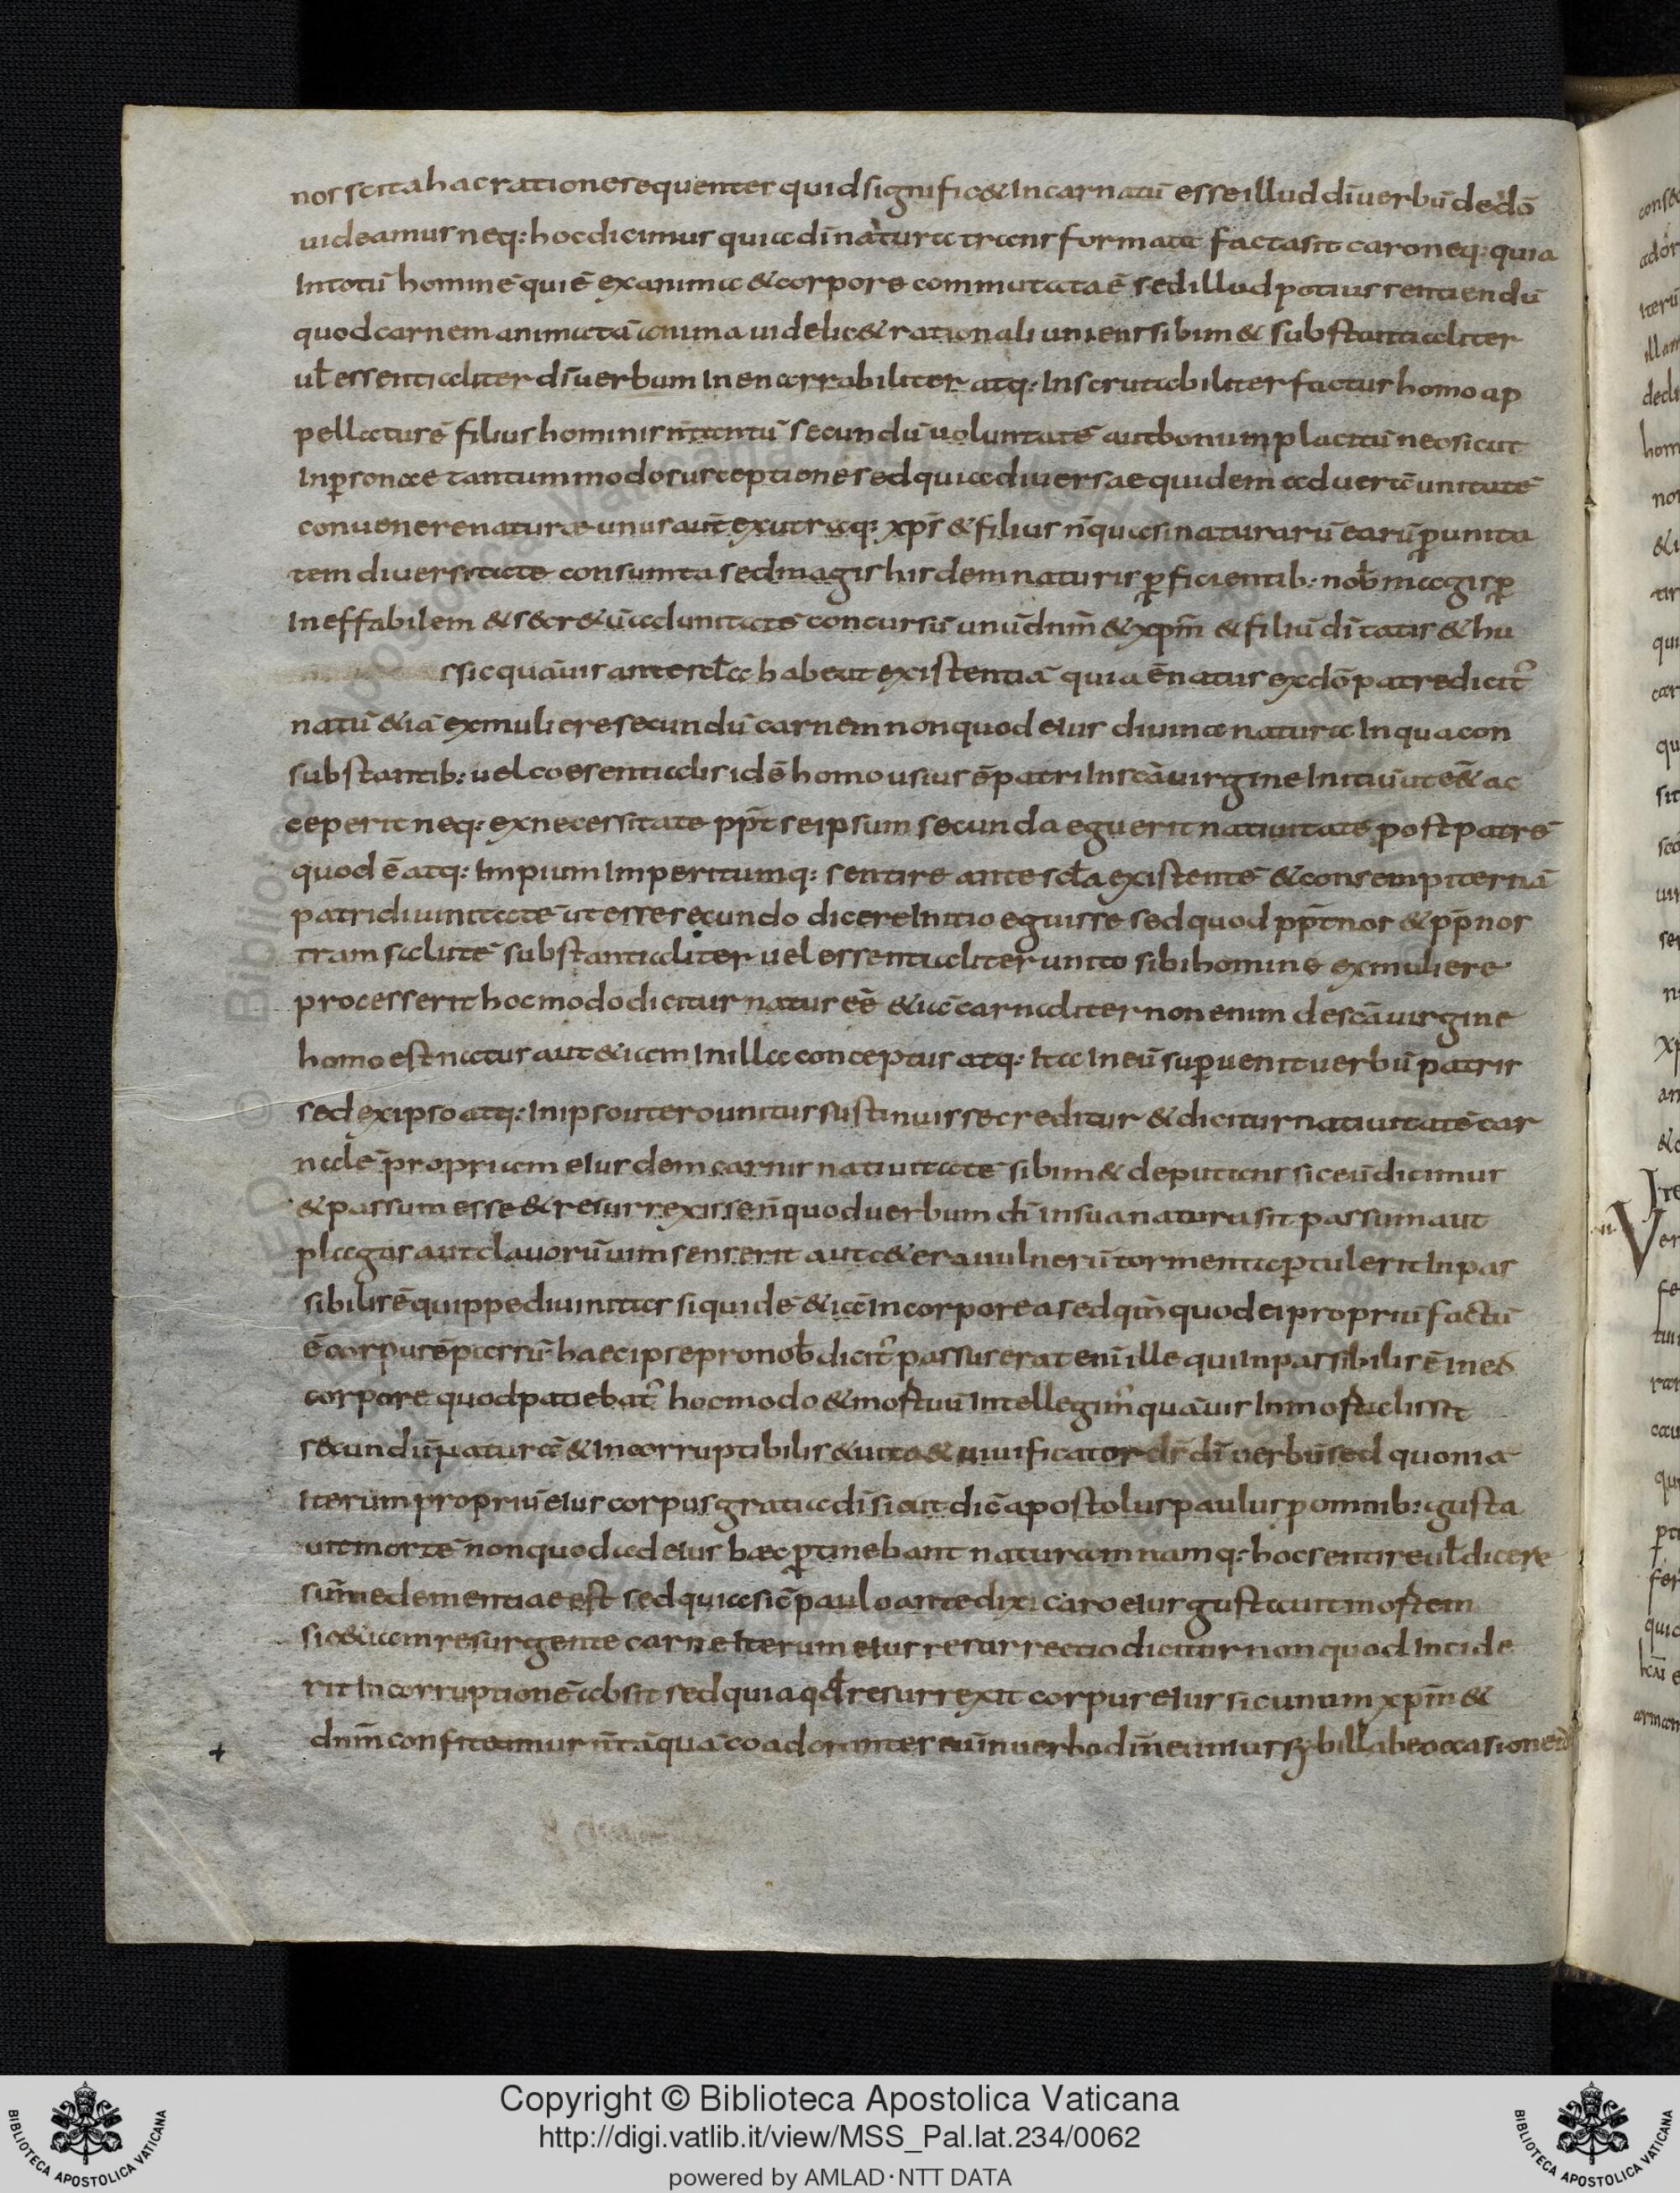 nos scita hac ratione sequenter quid signific& Incarnatū esse illud dī uerbū de dō
uideamus neq: hoc dicimus quia dī natura transformata facta sit caro neq: quia
In totū hominē qui ē ex anima & corpore commutata ē sed illud potius sentiendū
quod carnem animatā anima uidelic& rationali uniens sibim& substantialiter
ut̄ essentialiter dī uerbum Inenarrabiliter atq: Inscrutabiliter factus homo ap
pellatus ē filius hominis n̄ tantū secundū uoluntatē aut bonum placitū nec sicut
In p̱sonae tantummodo susceptione sed quia diuersae quidem ad uerā unitatē
conuenere naturae unus aut̄ ex utraq: xp̄s & filius n̄ quasi naturarū earū p̱ unita
tem diuersitate consumta sed magis hisdem naturis p̱ficientib: nob̄ magis p̱
Ineffabilem & secr&ū adunitatē concursū unū dn̄m & xp̄m & filiū dī tatis & hu
s sic quāuis ante sc̄la habeat existentiā quia ē natus ex dō patre dicit̄
natū &iā ex muliere secundū carnem non quod eius diuina natura In qua con
substantib: uel coesentialis idē homousius ē patri In scā uirgine Initiū ut e&̄ ac
ceperit neq: ex necessitate pp̄t se ipsum secunda eguerit natiuitatē post patrē
quod ē atq: Impium Imperitumq: sentire ante sc̄la existentē & consempiternā
patri diuinitatē ut esse secundo dicere Initio eguisse sed quod pp̄t nos & pp̄ nos
tram salutē substantialiter uel essentialiter unito sibi homine ex muliere
processerit hoc modo dicitur natus eē &iā carnaliter non enim de scā uirgine
homo est natus aut &iam In illa conceptus atq: Ita In eū sup̱uenit uerbū patris
sed ex ipso atq: In ipso utero unitus sustinuisse creditur & dicitur natiuitatē car
nalē propriam eiusdem carnis natiuitatē sibim& deputans sic eū dicimus
& passum esse & resurrexisse n̄ quod uerbum dī in sua natura sit passum aut
plagas aut clauorū uim senserit aut c&era uulnerū tormenta p̱tulerit Inpas
sibilis ē quippe diuinitas siquidē &iā Incorporea sed qm̄ quod ei propriū factū
ē corpus ē passū haec ipse pro nob̄ dicit̄ passus erat enī ille qui Inpassibilis ē in eo
corpore quod patiebat̄ hoc modo & mortuū Intellegim̄ quāuis Inmortalis sit
secundū naturā & Incorruptibilis & uita & uiuificator dī uerbū sed quoniā
Iterum propriū eius corpus gratia dī sicut dic̄ apostolus paulus p̱ omnib: gusta
uit mortē non quod ad eius haec p̱tinebant naturam namq: hoc sentire ut̄ dicere
sum̄e dementiae est sed quia sic̄ paulo ante dixi caro eius gustauit mortem
sic &iam resurgente carne Iterum eius resurrectio dicitur non quod Incide
rit In corruptionē absit sed quia qd̄ resurrexit corpus eius sic unum xp̄m &
dn̄m confiteamur n̄ tāquā co adorantes
Copyright © Biblioteca Apostolica Vaticana
http://digi.vatlib.it/view/MSS_Pal.lat.234/0062
powered by AMLAD·NTT DATA
BIBLIOTECA APOSTOLICA VATICANA
BIBLIOTECA APOSTOLICA VATICANA